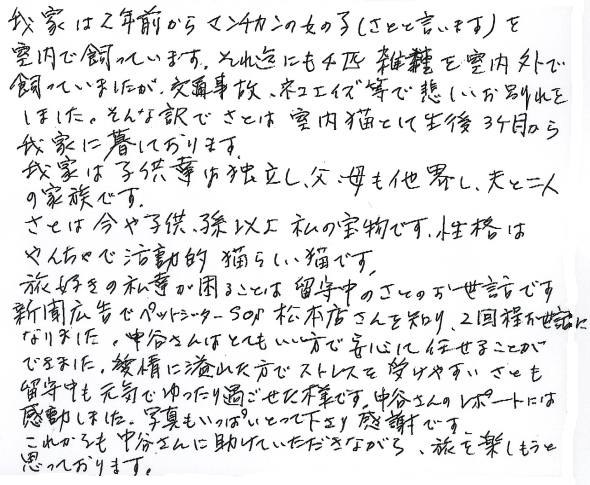 我家は2年前からマンチカンの女の子(さとと言います)を
室内で飼っています。それ迄にも4匹 雑種を室内外で
飼っていましたが、交通事故、ネコエイズ等で悲しいお別れを
しました。そんな訳でさとは室内猫として生後3ヶ月から
我家に暮しております。
我家は子供達は独立し、父、母も他界し、夫と二人
の家族です。
さとは今や子供、孫以上 私の宝物です。性格は
やんちゃで活動的 猫らしい猫です。
旅好きの私達が困ることは留守中のさとのお世話です
新聞広告でペットシッターSOS 松本店さんを知り、2回程お世話に
なりました。中谷さんはとてもいい方で安心して任せることが
できました。愛情に溢れた方でストレスを受けやすいさとも
留守中も元気でゆったり過ごせた様です。中谷さんのレポートには
感動しました。写真もいっぱいとって下さり感謝です。
これからも中谷さんに助けていただきながら、旅を楽しもうと
思っております。